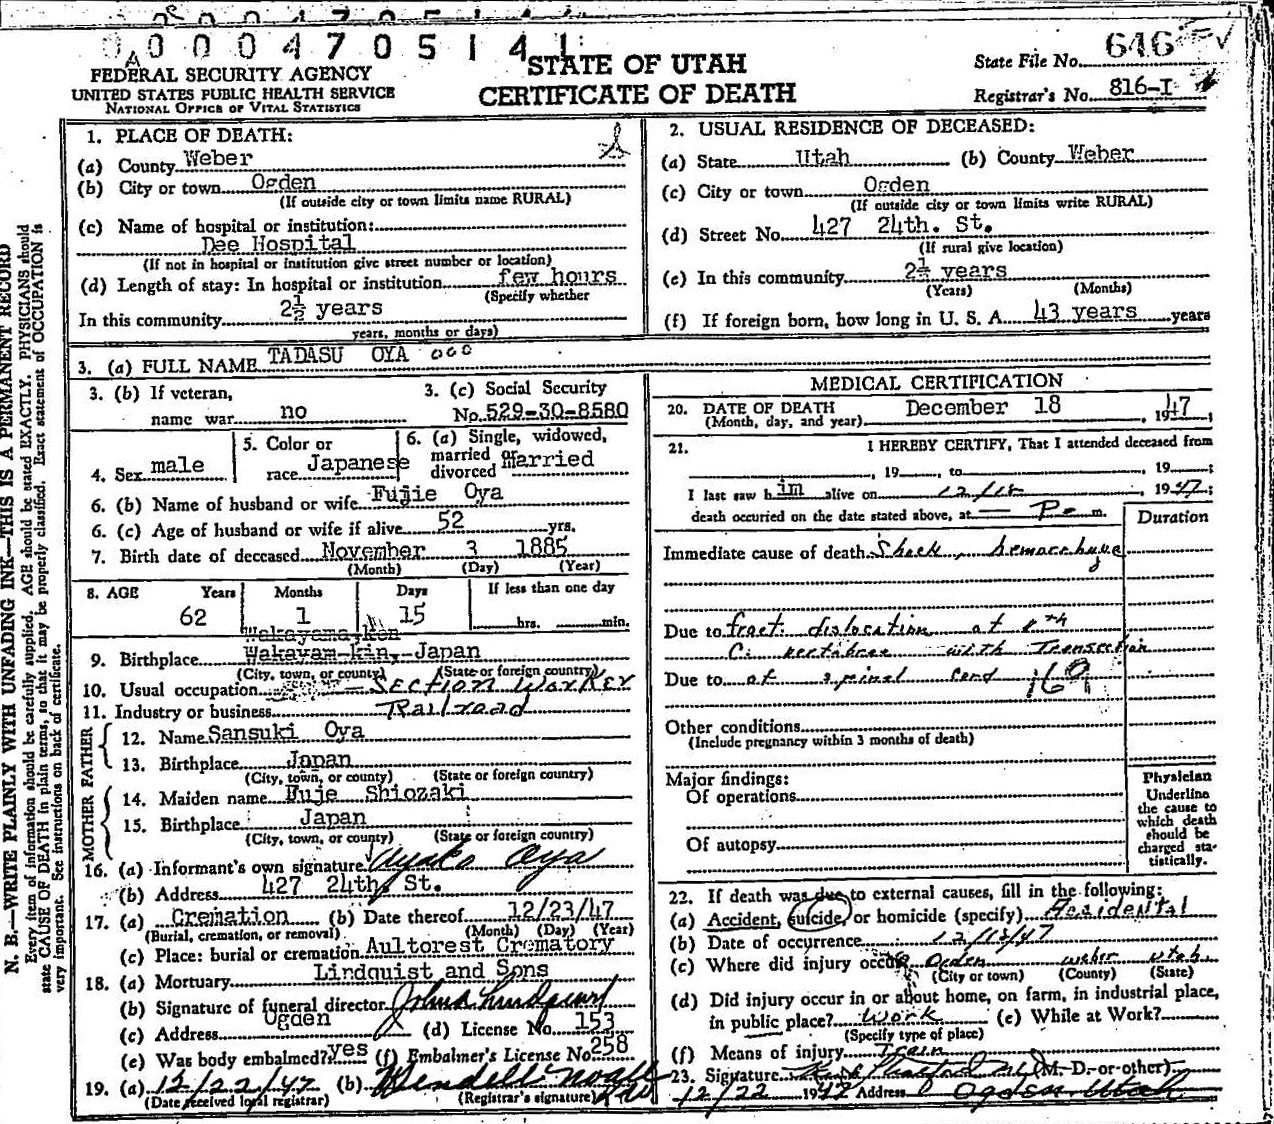 0000470514 1
FEDERAL SECURITY AGENCY
UNITED STATES PUBLIC HEALTH SERVICE
NATIONAL OFFICE OF VITAL STATISTICS
STATE OF UTAH
CERTIFICATE OF DEATH
State File No. 646
Registrar's No. 816-I
N. B.—WRITE PLAINLY WITH UNFADING INK—THIS IS A PERMANENT RECORD
Every item of information should be carefully supplied. AGE should be stated EXACTLY. PHYSICIANS should
state CAUSE OF DEATH in plain terms, so that it may be properly classified. Exact statement of OCCUPATION is
very important. See instructions on back of certificate.
1. PLACE OF DEATH:
(a) County Weber
(b) City or town Ogden
(If outside city or town limits name RURAL)
(c) Name of hospital or institution:
Dee Hospital
(If not in hospital or institution give street number or location)
(d) Length of stay: In hospital or institution few hours
(Specify whether
In this community 2½ years
years, months or days)
2. USUAL RESIDENCE OF DECEASED:
(a) State Utah (b) County Weber
(c) City or town Ogden
(If outside city or town limits write RURAL)
(d) Street No. 427 24th. St.
(If rural give location)
(e) In this community 2½ years
(Years) (Months)
(f) If foreign born, how long in U. S. A. 43 years years
3. (a) FULL NAME TADASU OYA
3. (b) If veteran,
name war no
3. (c) Social Security
No. 529-30-8580
4. Sex male
5. Color or
race Japanese
6. (a) Single, widowed,
married or
divorced Married
6. (b) Name of husband or wife Fujie Oya
6. (c) Age of husband or wife if alive 52 yrs.
7. Birth date of deceased November 3 1885
(Month) (Day) (Year)
8. AGE Years Months Days If less than one day
62 1 15 hrs. min.
Wakayama,ken
9. Birthplace Wakayam-kin, Japan
(City, town, or county) (State or foreign country)
10. Usual occupation Section Worker
11. Industry or business Railroad
FATHER
12. Name Sansuki Oya
13. Birthplace Japan
(City, town, or county) (State or foreign country)
MOTHER
14. Maiden name Fuje Shiozaki
15. Birthplace Japan
(City, town, or county) (State or foreign country)
16. (a) Informant's own signature Ayako Oya
(b) Address 427 24th, St.
17. (a) Cremation (b) Date thereof 12/23/47
(Burial, cremation, or removal) (Month) (Day) (Year)
(c) Place: burial or cremation Aultorest Crematory
18. (a) Mortuary Lindquist and Sons
(b) Signature of funeral director John A Lindquist
(c) Address Ogden (d) License No. 153
(e) Was body embalmed? yes (f) Embalmer's License No. 258
19. (a) 12/22/47 (b) Wendell Noall
(Date received local registrar) (Registrar's signature)
MEDICAL CERTIFICATION
20. DATE OF DEATH December 18, 1947;
(Month, day, and year)
21. I HEREBY CERTIFY, That I attended deceased from
, 19 , to , 19 ;
I last saw him alive on 12/18, 1947;
death occuried on the date stated above, at — P. m.
Duration
Immediate cause of death Shock, hemorrhage
Due to fract. dislocation at 8th
C. vertebrae with Transection
Due to of spinal cord 169
Other conditions
(Include pregnancy within 3 months of death)
Major findings:
Of operations
Of autopsy
Physician
Underline
the cause to
which death
should be
charged sta-
tistically.
22. If death was due to external causes, fill in the following:
(a) Accident, suicide, or homicide (specify) Accidental
(b) Date of occurrence 12/18/47
(c) Where did injury occur? Ogden Weber Utah
(City or town) (County) (State)
(d) Did injury occur in or about home, on farm, in industrial place,
in public place? Work (e) While at Work?
(Specify type of place)
(f) Means of injury Train
23. Signature (M. D. or other)
12/22 1947 Address Ogden Utah